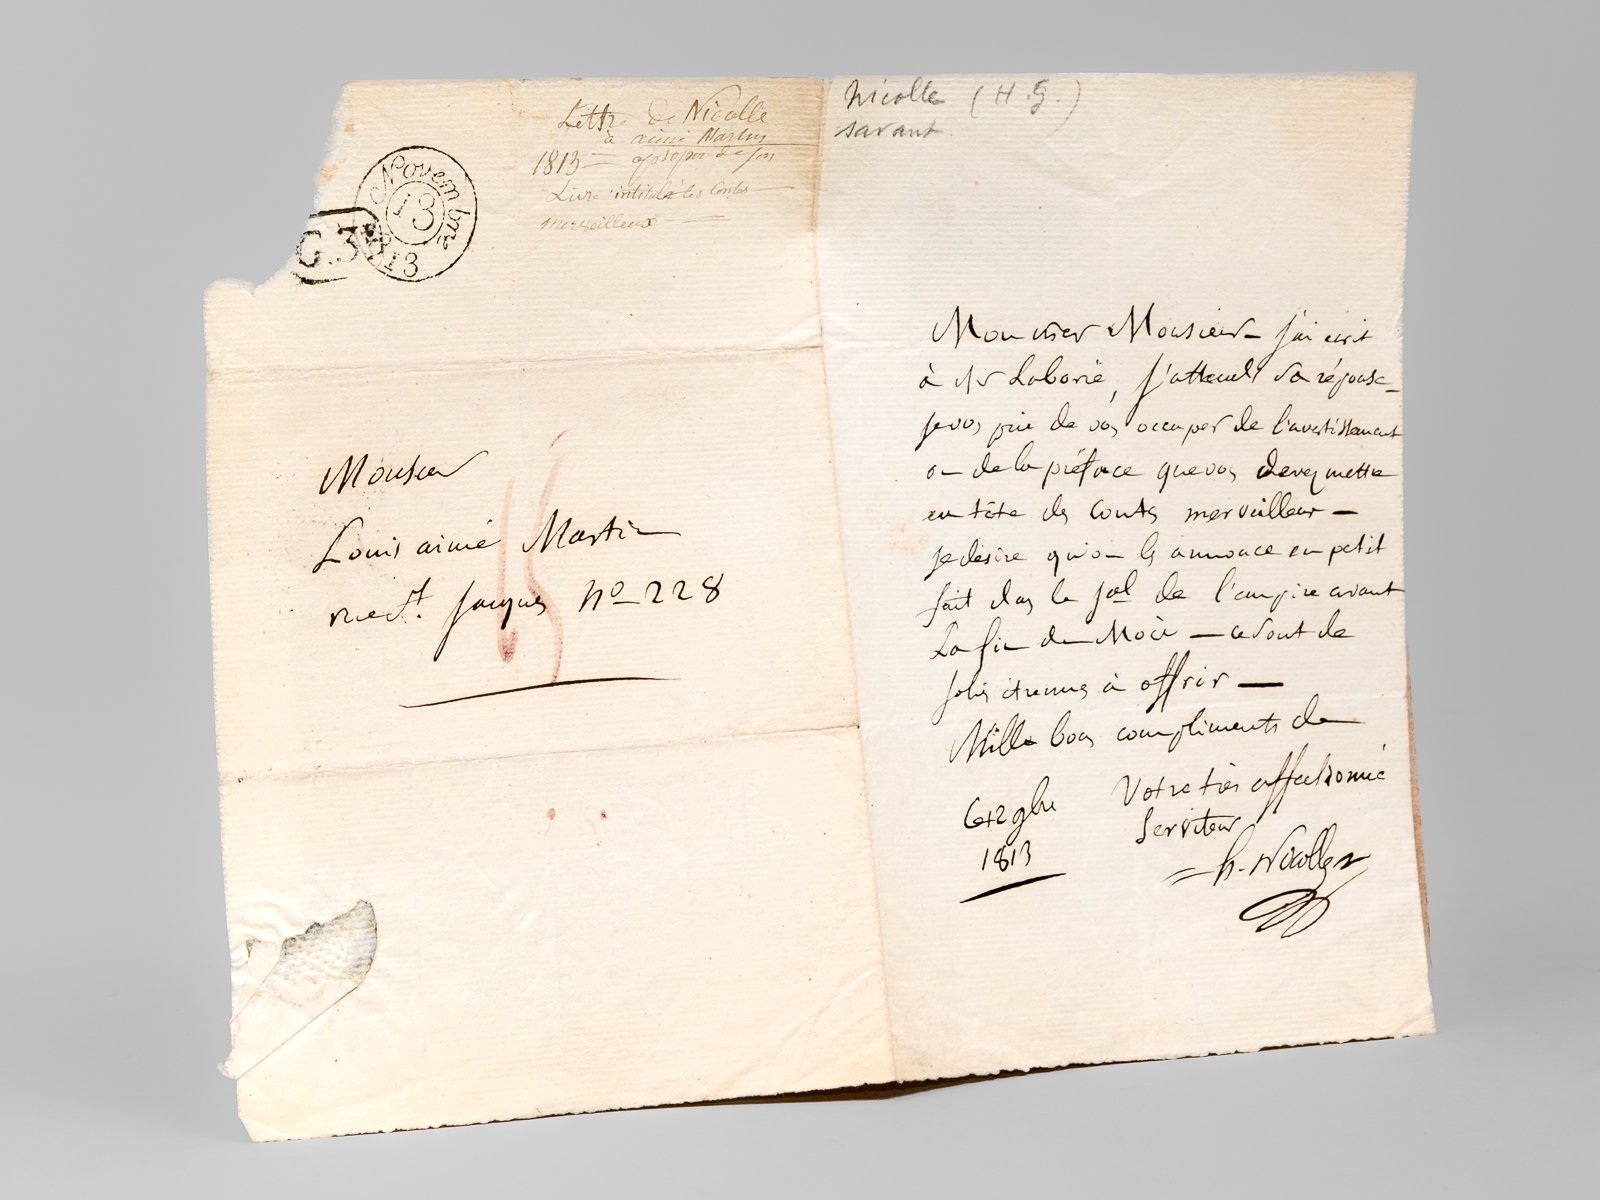 Lettre de Nicolle
à aimé Martin
1813 — apropos de son
Livre intitulé les Contes
merveilleux —
Novembre
13
1813
G.3
Monsieur
Louis aimé Martin
rue St. Jacques No 228
Nicolle (H.G.)
savant
Mon cher Monsieur j'ai écrit
à Mr Laborie, j'attends sa réponse
je vos prie de vos occuper de l'avertissement
ou de la préface que vos devez mettre
en tête des contes merveilleux —
je désire qu'on les annonce en petit
fait dans le jal de l'empire avant
la fin du Mois — ce sont de
jolies étrennes à offrir —
Mille bons compliments de
Votre très affectionné
Serviteur
h. Nicolle
9bre
1813